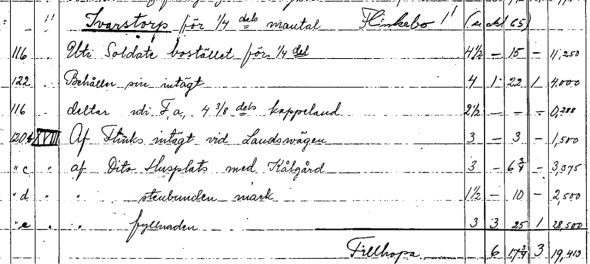 " Ivarstorp för 1/4 dels mantal Flinkebo 1' (se akt 65)
116 Uti Soldate bostället för 1/4 del 4 1/2 – 15 – 11,250
122 Behåller sin intägt 4 1 22 1 4,000
116 deltar uti F a, 4 3/8 dels kappeland 2 1/2 – – –
120 b XVIII Af Flinks intägt vid Landsvägen 3 – 3 – 1,500
" c " af Dito Husplats med Kålgård 3 – 6 3/4 – 3,375
" d " " stenbunden mark 1 1/2 – 10 – 2,500
" e " " fyllnaden 3 3 25 1 28,500
Tillhopa 6 17 3/4 3 19,413